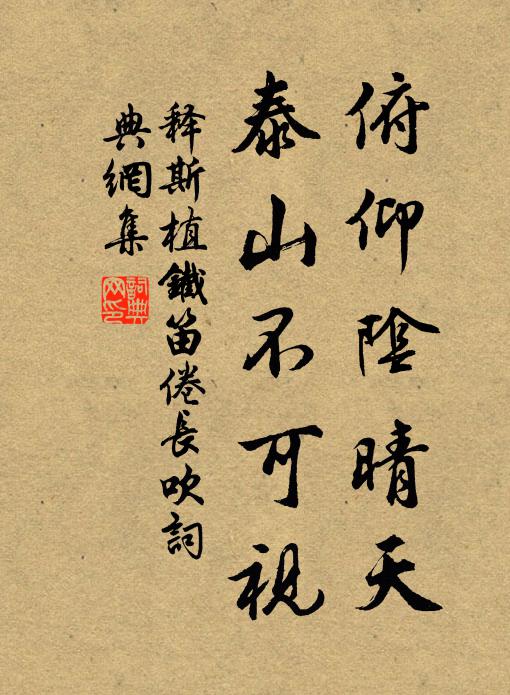 俯仰陰晴天
泰山不可視
釋斯植鐵笛倦長吹詞
典網集
詞典網印